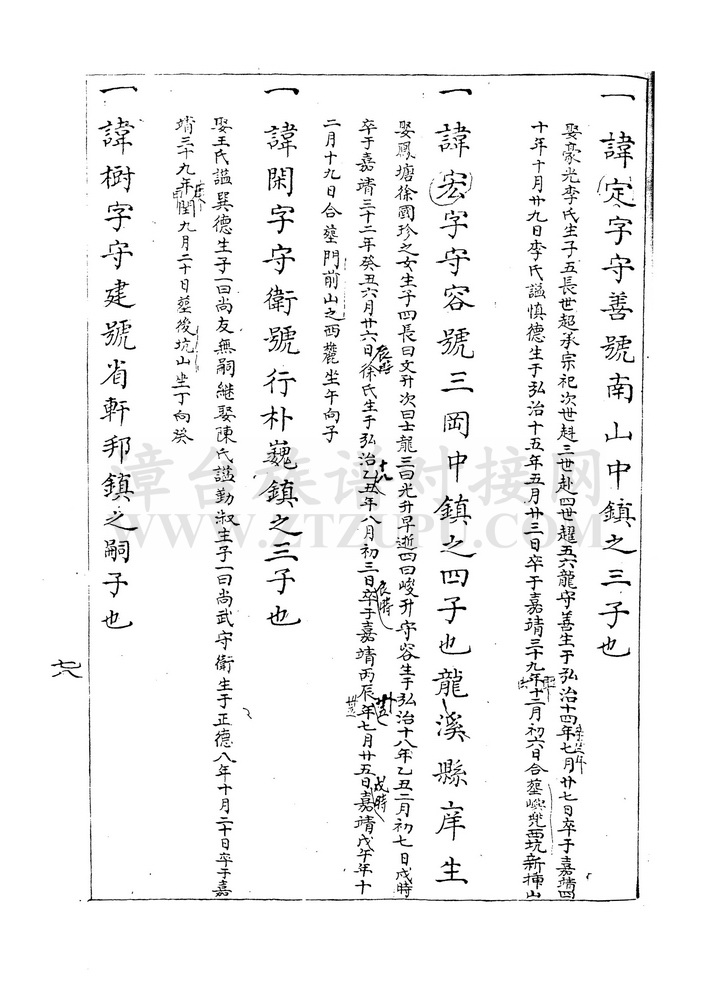 一諱定字守善號南山中鎮之三子也
娶豪光李氏生子五長世超承宗祀次世赳三世赴四世趨五六龍守善生于弘治十四年七月廿七日卒于嘉靖四
十年十月廿九日李氏謚慎德生于弘治十五年五月廿三日卒于嘉靖三十九年十二月初六日合塟嶼兜西坑新揷山
一諱宏字守容號三岡中鎮之四子也龍溪縣庠生
娶鳳塘徐國珍之女生子四長曰文升次曰士龍三曰光升早逝四曰峻升守容生于弘治十八年乙丑二月初七日戌時
卒于嘉靖三十二年癸丑六月廿六日辰時徐氏生于弘治乙丑年八月初三日辰時卒于嘉靖丙辰年七月廿五日戌時嘉靖戊午年十
二月十九日合塟門前山之西麓坐午向子
一諱閑字守衛號行朴巍鎮之三子也
娶王氏謚巽德生子一曰尚友無嗣継娶陳氏謚勤淑生子一曰尚武守衛生于正德八年十月二十日卒于嘉
靖三十九年閏九月二十日塟後坑山坐丁向癸
一諱樹字守建號省軒邦鎮之嗣子也
七八
漳台族谱对接网
WWW.ZTZUPU.COM